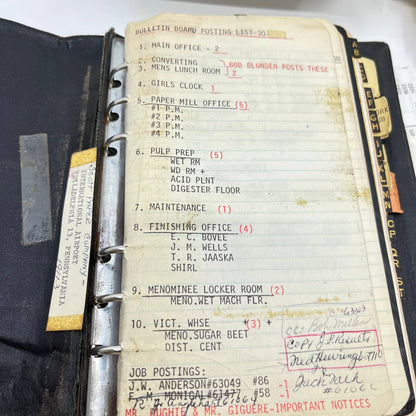 BULLETIN BOARD POSTING LIST-30
1. MAIN OFFICE - 2
2. CONVERTING
3. MENS LUNCH ROOM
BOB BLUNDEN POSTS THESE
2
4. GIRLS CLOCK 1
5. PAPER MILL OFFICE (5)
#1 P.M.
#2 P.M.
#3 P.M.
#4 P.M.
6. PULP PREP (5)
WET RM
WD RM +
ACID PLNT
DIGESTER FLOOR
7. MAINTENANCE (1)
8. FINISHING OFFICE (4)
E. C. BOVEE
J. M. WELLS
T. R. JAASKA
SHIRL
9. MENOMINEE LOCKER ROOM (2)
MENO.WET MACH FLR.
10. VICT. WHSE (3) +
MENO.SUGAR BEET
DIST. CENT
CC: Bob Milan
COPY J.P. Results
JOB POSTINGS:
J.W. ANDERSON#63049 #86
F. M. MONICAL#61471 #58
MR. HUGHIE & MR. GIGUERE-IMPORTANT NOTICES
SCOTT PAPER COMPANY
INTERNATIONAL AIRPORT
PHILADELPHIA 13, PENNSYLVANIA